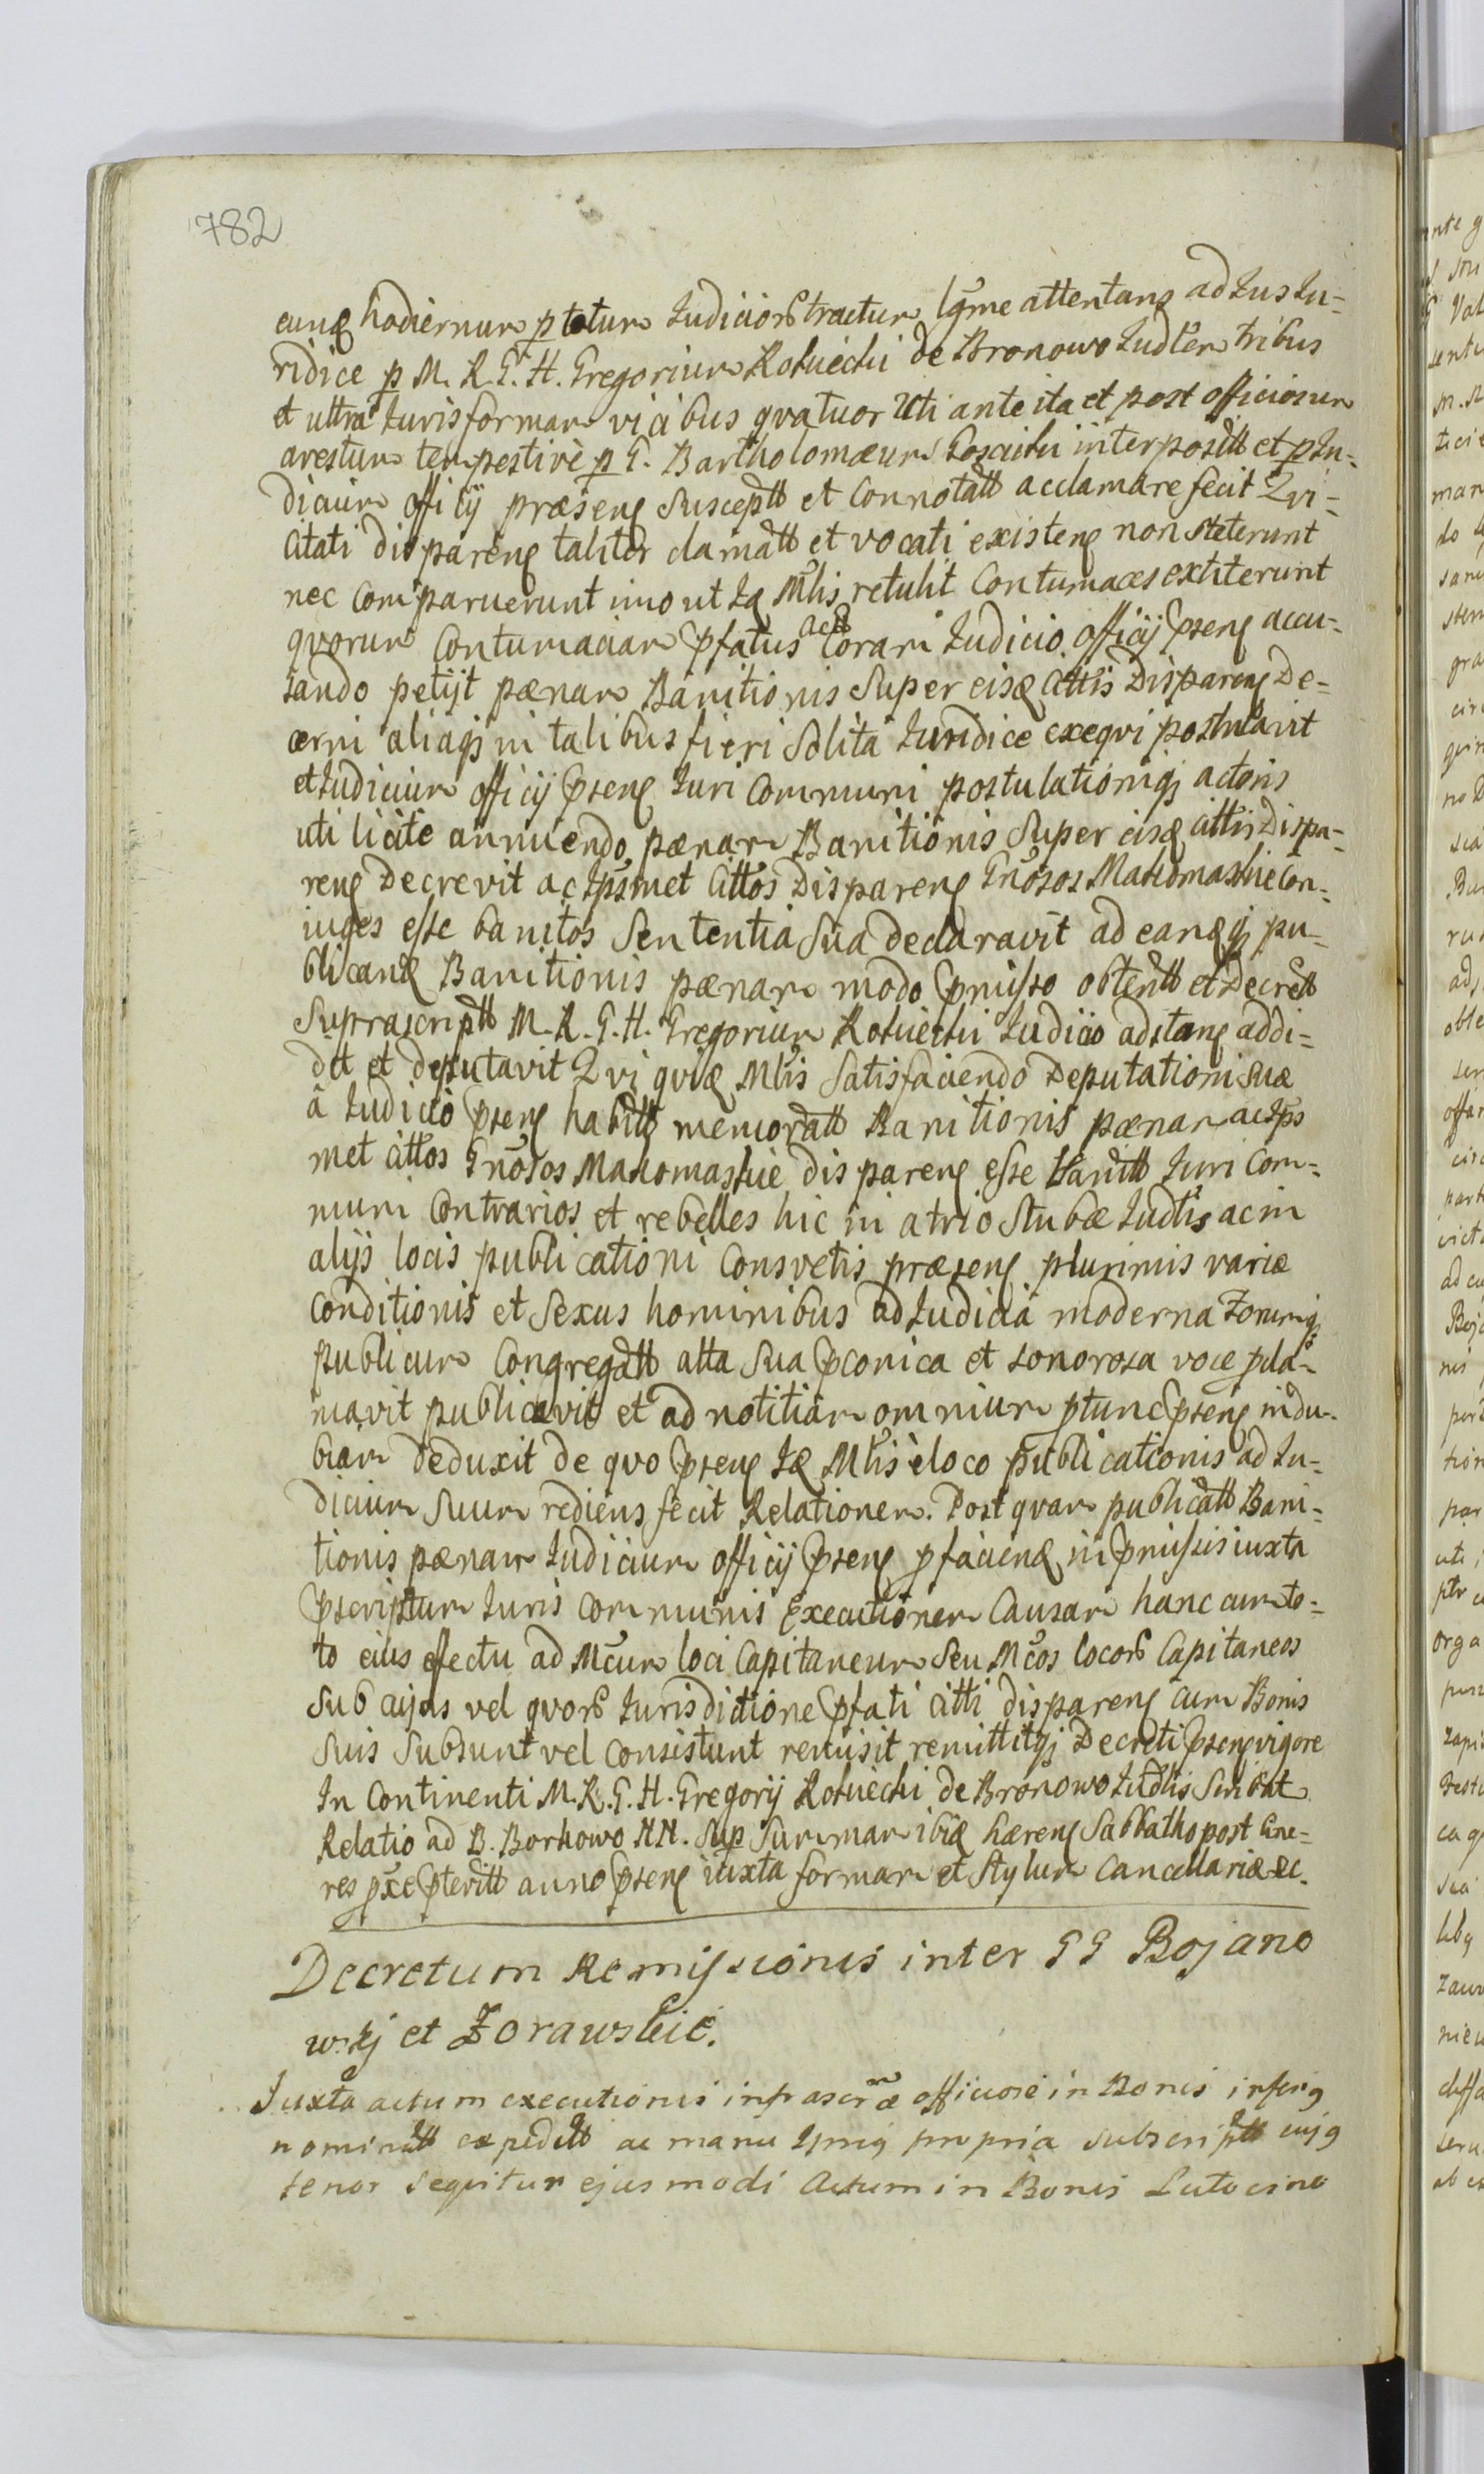 782
eunq hodiernum p totum Judiciorß tractum lgme attentans ad Jus Ju-
ridice p M. R. G. H. Gregorium Rokiecki de Bronowo Judlem tribus
et ultra Juris formam vicibus qvatuor Uti ante ita et post officiosum
arestum tempestivè p G. Bartholomæum interpositt et p Ju-
dicium officij præseng Susceptt et Connotatt acclamare fecit Qvi-
Citati dispareng taliter clamatt et vocati existeng non Steterunt
nec Comparuerunt imo ut Jq Mlis retulit Contumaces extiterunt
qvorum Contumaciam pfatus act Coram Judicio officij pseng accu-
sando petijt pænam Banitionis Super eisq Cittis Dispareng De-
cerni aliaqj in talibus fieri Solita Juridice exeqvi postulavit
et Judicium officij pseng Juri Communi postulationiqj actoris
uti licite annuendo pænam Banitionis Super eisq cittis Dispa-
reng Decrevit ac Jpsmet Cittos Dispareng Gnosos Makomaskie Con-
iuges esse banitos Sententia Sua declaravit ad eanqqj pu-
blicanq Banitionis pænam modo pmisso obtentt et Decrett
Suprascriptt M. R. G. H. Gregorium Rokiecki Judicio adstang addi-
dit et deputavit Qvi qviq Mlis Satisfaciendo Deputationi Suæ
à Judicio pseng habitt memoratt Banitionis pænam ac Jps
met cittos Gnosos Makomaskie dispareng esse banitt Juri Com-
muni Contrarios et rebelles hic in atrio Stubæ Judlis ac in
alijs locis publicationi Consvetis præseng plurimis variæ
Conditionis et Sexus hominibus ad Judicia moderna Forumqj
publicum Congregatt alta Sua pconica et sonorosa voce pcla-
mavit publicavit et ad notitiam omnium ptunc pseng indu-
biam deduxit de qvo pseng Jq Mlis è loco publicationis ad Ju-
dicium Suum rediens fecit Relationem. Post qvam publicatt Bani-
tionis pænam Judicium officij pseng pfacienq in pmissis iuxta
pscriptum Juris Communis Executionem Causam hanc cum to-
to eius effectu ad Mcum loci Capitaneum Seu Mcos locorß Capitaneos
Sub cujus vel qvorß Jurisdictione pfati citti dispareng cum Bonis
Suis Subsunt vel Consistunt remisit remittitqj Decreti pseng vigore
In Continenti M. R. G. H. Gregorij Rokiecki de Bronowo Judlis Scribit
Relatio ad B. Borkowo NN. Sup Summam ibiq hæreng Sabbatho post Cine-
res pxe pteritt anno pseng iuxta formam et Stylum Cancellariæ ec.
Decretum Remissionis inter GG Bojano
wskj et Zorawskie.
Juxta actum executionis infrascræ officiose in Bonis inferig
nominatt expeditt ac manu Jpsiq propria subscriptt cujg
tenor seqvitur ejusmodi Actum in Bonis Lutocino